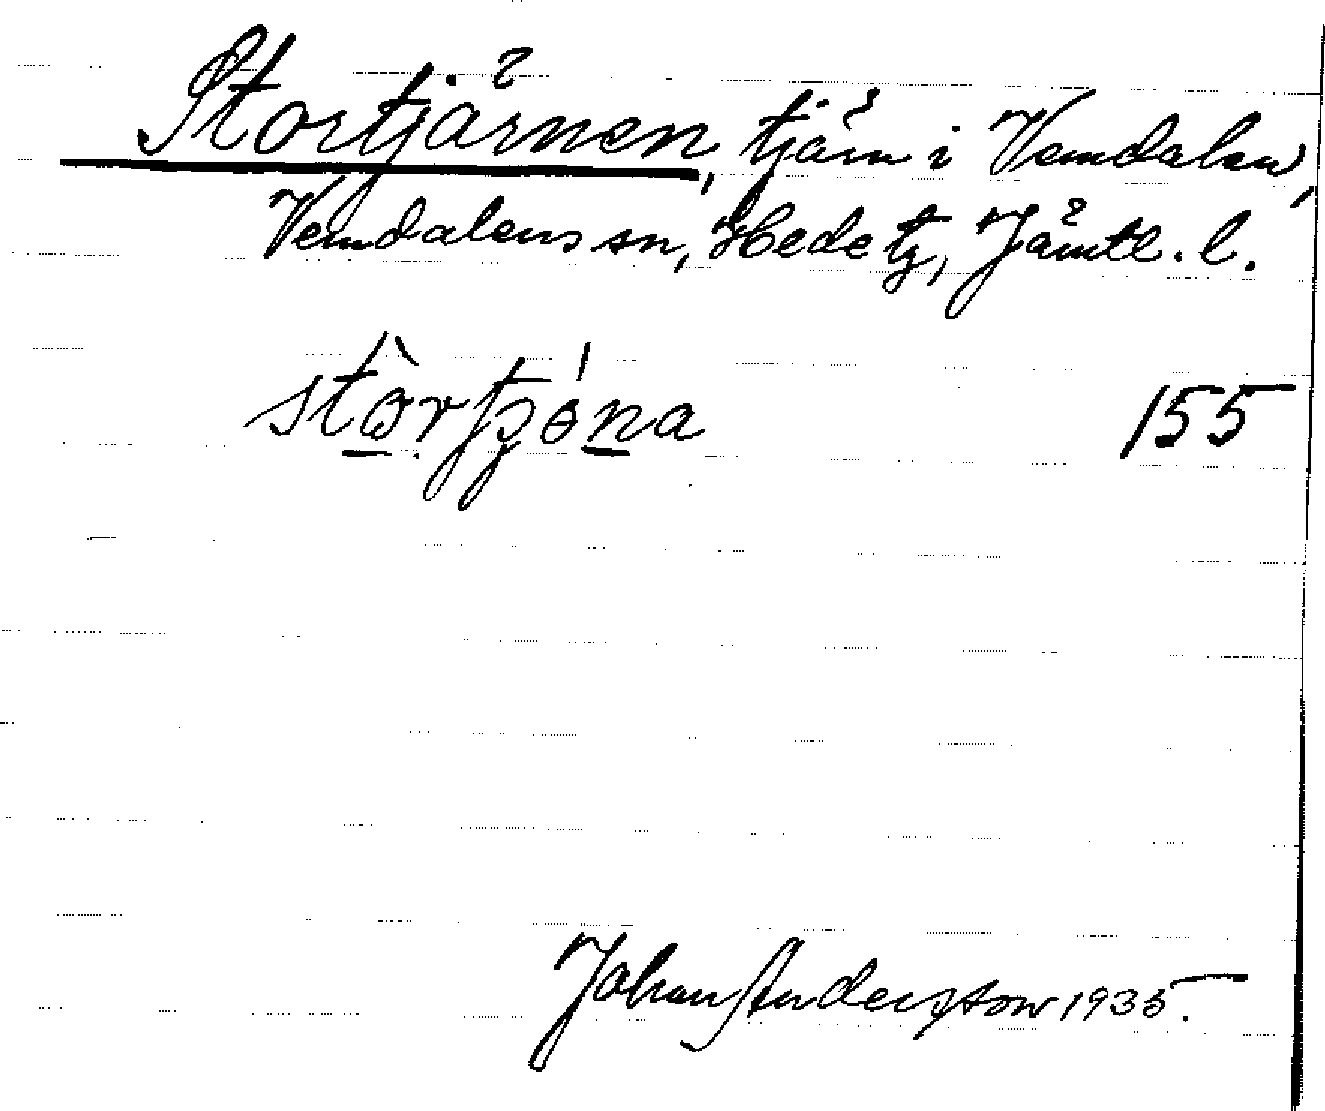 Stortjärnen, tjärn i Vemdalen,
Vemdalens sn, Hede tg, Jämtl. l.
155
Johan Andersson 1935.